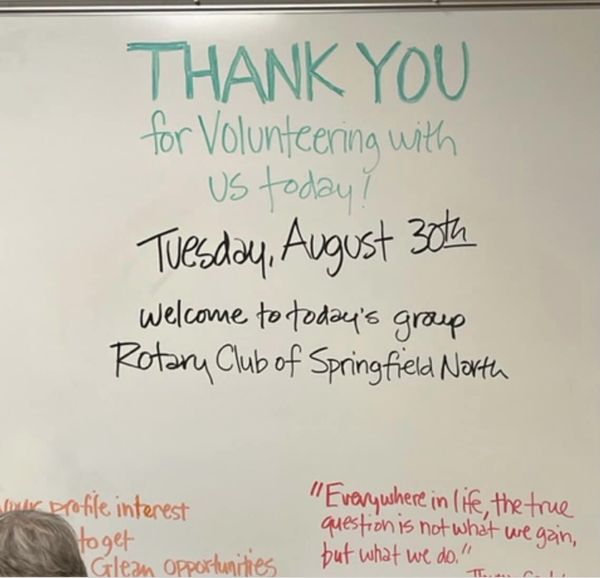 THANK YOU
for Volunteering with
us today!
Tuesday, August 30th
Welcome to today's group
Rotary Club of Springfield North
profile interest
to get
Glean opportunities
"Everywhere in life, the true
question is not what we gain,
but what we do."